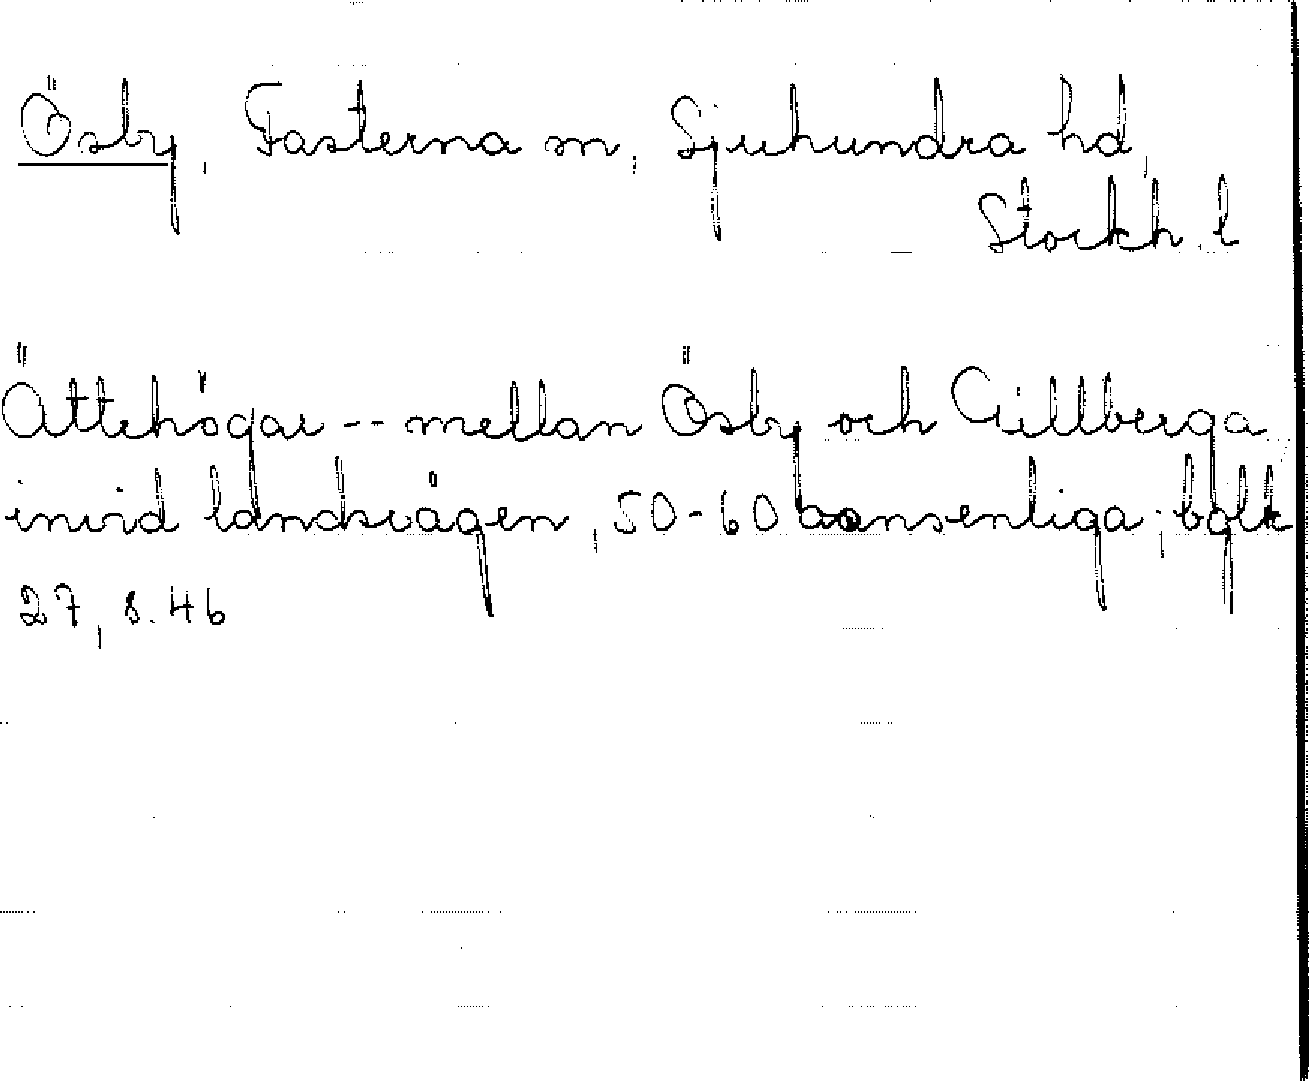 Ösby, Fasterna sn, Sjuhundra hd,
Stockh. l
Ättehögar -- mellan Ösby och Gillberga
invid landsvägen, 50-60 ansenliga; bglk
27, s. 46